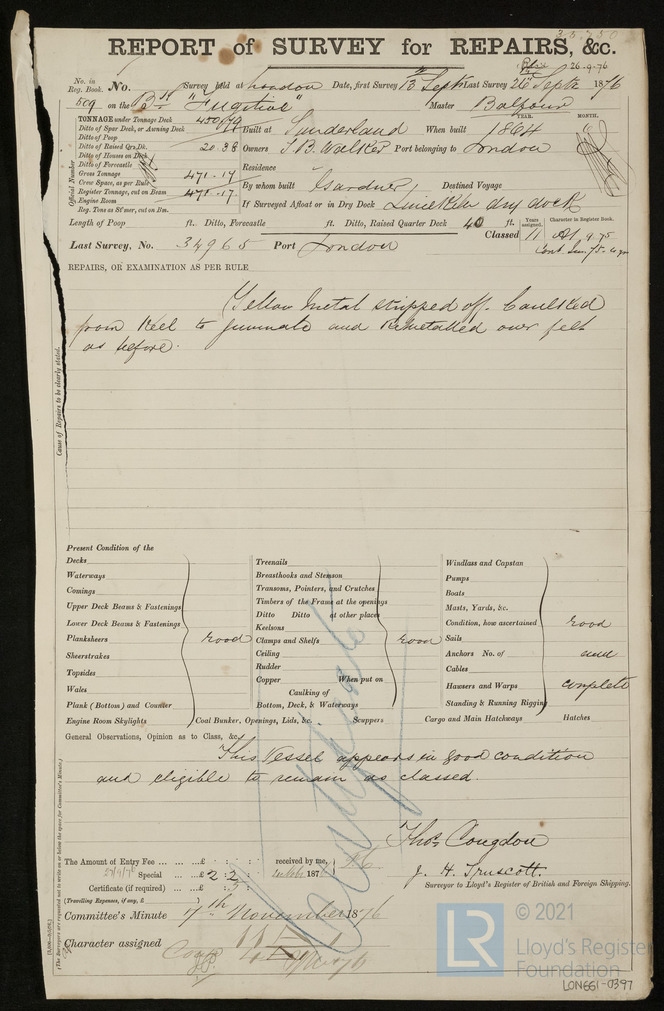 REPORT of SURVEY for REPAIRS, &c.
26-9-76
No. in Reg. Book. No. Survey held at London Date, first Survey 13th Septr Last Survey 26th Septr 1876
509 on the Bk "Fugitive" Master Balfour
TONNAGE under Tonnage Deck 450.79
Ditto of Spar Deck, or Awning Deck
Ditto of Poop
Ditto of Raised Qr. Dk. 20.38
Ditto of Houses on Deck
Ditto of Forecastle
Gross Tonnage 471.17
Crew Space, as per Rule
Register Tonnage, cut on Beam 471.17
Engine Room
Reg. Tons as St'mer, cut on Bm.
Official Number
Built at Sunderland When built YEAR. 1864 MONTH.
Owners T. B. Walker Port belonging to London
Residence
By whom built Gardner Destined Voyage
If Surveyed Afloat or in Dry Dock Limekiln dry dock
Length of Poop ft. Ditto, Forecastle ft. Ditto, Raised Quarter Deck 40 ft.
Classed Years assigned. 11 Character in Register Book. A1 9.75
Last Survey, No. 34965 Port London
REPAIRS, OR EXAMINATION AS PER RULE
Yellow Metal stripped off. Caulked
from Keel to gunwale and Remetalled over felt
as before.
Cause of Repairs to be clearly stated.
Present Condition of the
Decks
Waterways
Comings
Upper Deck Beams & Fastenings
Lower Deck Beams & Fastenings
Planksheers
Sheerstrakes
Topsides
Wales
Plank (Bottom) and Counter
Good
Treenails
Breasthooks and Stemson
Transoms, Pointers, and Crutches
Timbers of the Frame at the openings
Ditto Ditto at other places
Keelsons
Clamps and Shelfs
Ceiling
Rudder
Copper When put on
Caulking of
Bottom, Deck, & Waterways
Good
Windlass and Capstan
Pumps
Boats
Masts, Yards, &c.
Condition, how ascertained
Sails
Anchors No. of
Cables
Hawsers and Warps
Standing & Running Rigging
Good
and
complete
Engine Room Skylights Coal Bunker, Openings, Lids, &c. Scuppers Cargo and Main Hatchways Hatches
General Observations, Opinion as to Class, &c.
This Vessel appears in good condition
and eligible to remain as classed.
Thos Congdon
J. H. Truscott.
Surveyor to Lloyd's Register of British and Foreign Shipping.
The Amount of Entry Fee ... ... ...£ : : received by me,
Special ... ..£ 2 : 2 : 187
Certificate (if required) ...£ : 5 :
(Travelling Expenses, if any, £ )
Committee's Minute 7th November 1876
Character assigned
(The Surveyors are requested not to write on or below the space for Committee's Minute.)
LR
© 2021
Lloyd's Register
Foundation
LON661-0397